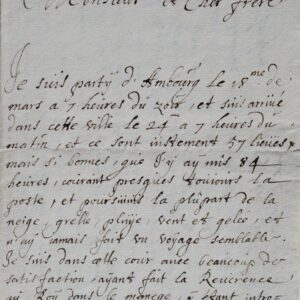 Monsieur et Cher frere
Je suis party d'Ambourg le 18me de
mars a 7 heures du zoir, et suis arrivé
dans cette ville le 24 a 7 heures du
matin, et ce sont iustement 57 lieües
mais si bonnes, que j'y ay mis 84
heures, courant presques tousiours la
poste, et poursuivi la pluspart de la
neige grelle, pluye, vent et gelée, et
n'ay iamais fait un voyage semblable.
Je suis dans cette cour avec beaucoup de
satisfaction, ayant fait la Reverence
au Roy dans le manege, y étant intro-